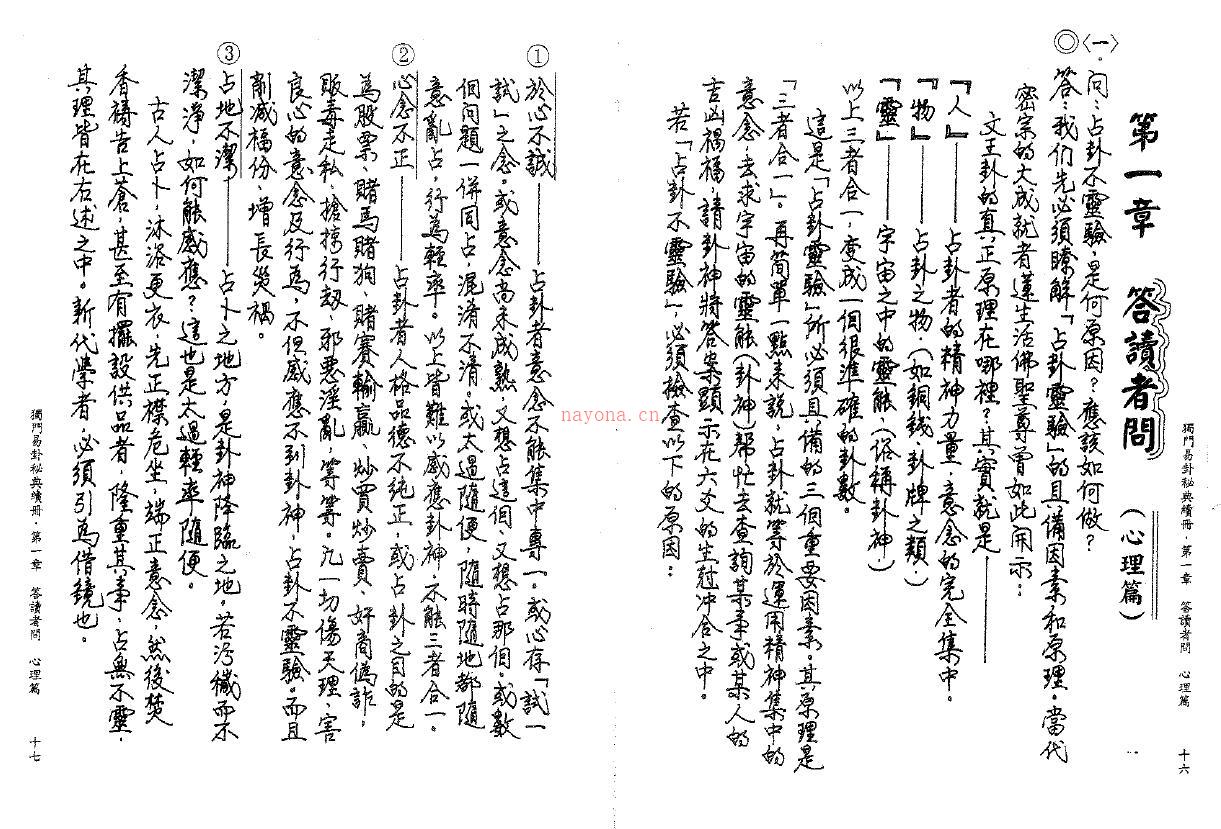 獨門易卦秘典續冊‧第一章 答讀者問 心理篇 十六
第一章 答讀者問（心理篇）
◎〈一〉‧問：占卦不靈驗，是何原因？應該如何做？
答：我们先必須瞭解「占卦靈驗」的具備因素，和原理。當代
密宗的大成就者蓮生活佛聖尊曾如此開示：
文王卦的真正原理在哪裡？其實就是——
『人』——占卦者的精神力量，意念的完全集中。
『物』——占卦之物，（如銅錢、卦牌之類，）
『靈』——宇宙之中的靈能，（俗稱卦神，）
以上三者合一，变成一個很準確的卦數。
這是「占卦靈驗」所必須具備的三個重要因素。其原理是
「三者合一」。再简單一點来說，占卦就等於運用精神集中的
意念，去求宇宙的靈能（卦神）帮忙去查詢某事或某人的
吉凶禍福，請卦神將答案顯示在六爻的生尅冲合之中。
若「占卦不靈驗」，必須檢查以下的原因：
①於心不誠——占卦者意念不能集中專一。或心存「試一
試」之念。或意念尚未成熟，又想占這個、又想占那個。或數
個問題一併同占，混淆不清。或太過隨便，隨時隨地都隨
意亂占，行為輕率。以上皆難以感應卦神，不能三者合一。
②心念不正——占卦者人格品德不純正，或占卦之目的是
為股票、賭馬賭狗、賭賽輸贏、炒買炒賣、奸商偽詐，
販毒走私、搶掠行刼、邪恶淫亂，等等。凡一切傷天理，害
良心的意念及行為，不但感應不到卦神，占卦不靈驗。而且
削减福份、增長災禍。
③占地不潔——占卜之地方，是卦神降臨之地。若污穢而不
潔净，如何能感應？這也是太過輕率隨便。
古人占卜，沐浴更衣，先正襟危坐，端正意念，然後焚
香禱告上蒼，甚至有擺設供品者，隆重其事，占無不靈，
其理皆在右述之中。新一代學者，必須引為借鏡也。
獨門易卦秘典續冊‧第一章 答讀者問 心理篇 十七
nayona.cn